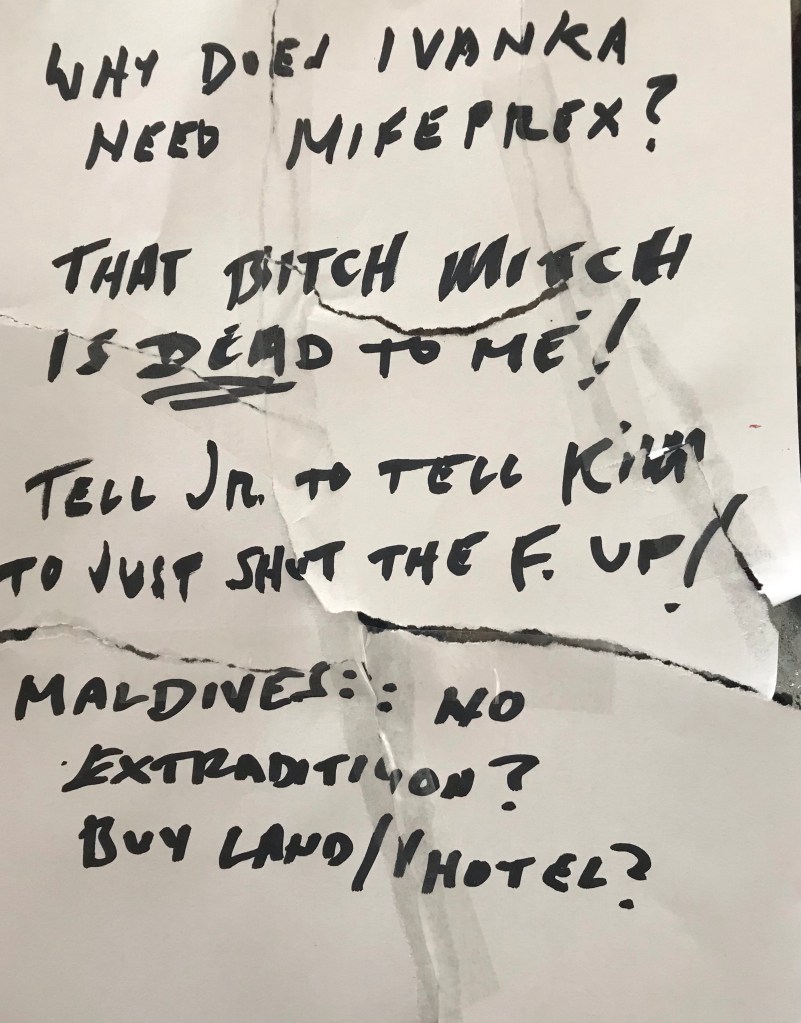 WHY DOES IVANKA
NEED MIFEPREX?
THAT BITCH MITCH
IS DEAD TO ME!
TELL JR. TO TELL KIM
TO JUST SHUT THE F. UP!
MALDIVES:: NO
EXTRADITIION?
BUY LAND//HOTEL?